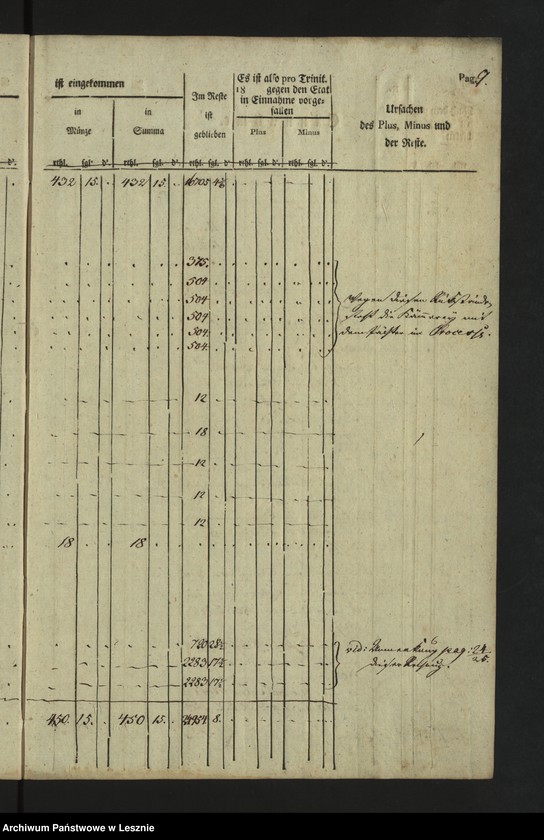 Pag. 9.
ist eingekommen
in Münze
in Summa
Im Reste ist geblieben
Es ist also pro Trinit.
18 gegen den Etat
in Einnahme vorge-
fallen
Plus Minus
Ursachen
des Plus, Minus und
der Reste.
rthl. sgl. d. rthl. sgl. d. rthl. sgl. d. rthl. sgl. d. rthl. sgl. d.
432 15. 432 15. 16705 4½
375.
504
504
504
504.
504.
wegen diesen Rückstände
steht die Kämmerey mit
dem Pächter in Process.
12
18
12
12
12
18 18
760 28½
2283 17½
2283 17½
vid: Anmerkung pag: 24
25.
dieser Rechnung.
450. 15. 450 15. 24954 8.
Archiwum Państwowe w Lesznie